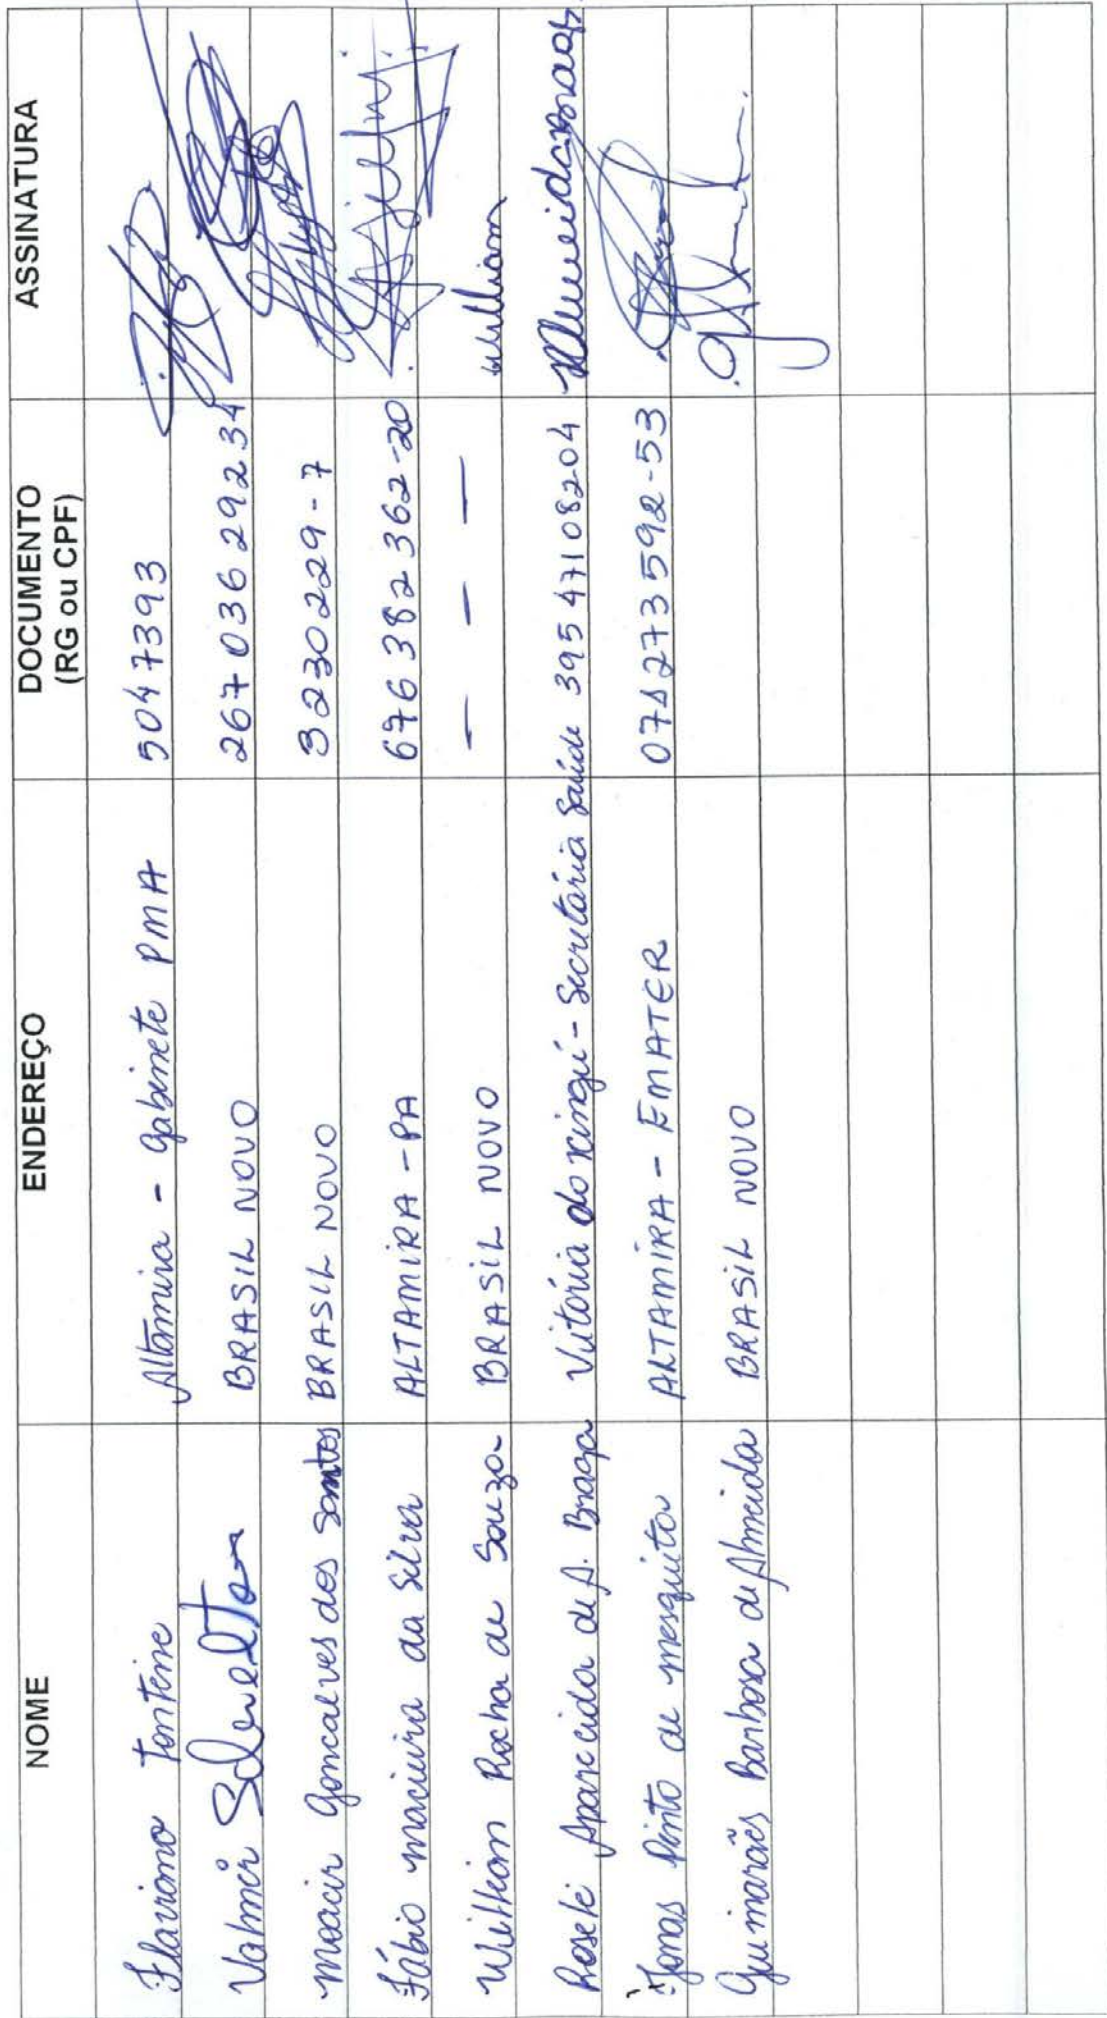 NOME ENDEREÇO DOCUMENTO (RG ou CPF) ASSINATURA
Flaviano Altamira - Gabinete PMA 5047393
Valmir BRASIL NOVO 267036292234
Moacir Goncalves dos Santos BRASIL NOVO 3230229-7
Fábio macieira da Silva ALTAMIRA - PA 676382362-20
William Rocha de Souza BRASIL NOVO - - - William
Roseli Aparecida de A. Braga Vitória do xingú - Secretária Saúde 39547108204 RAlmeidaBraga
Jonas Pinto de mesquita ALTAMIRA - EMATER 074273592-53
Guimarães Barbosa de Almeida BRASIL NOVO